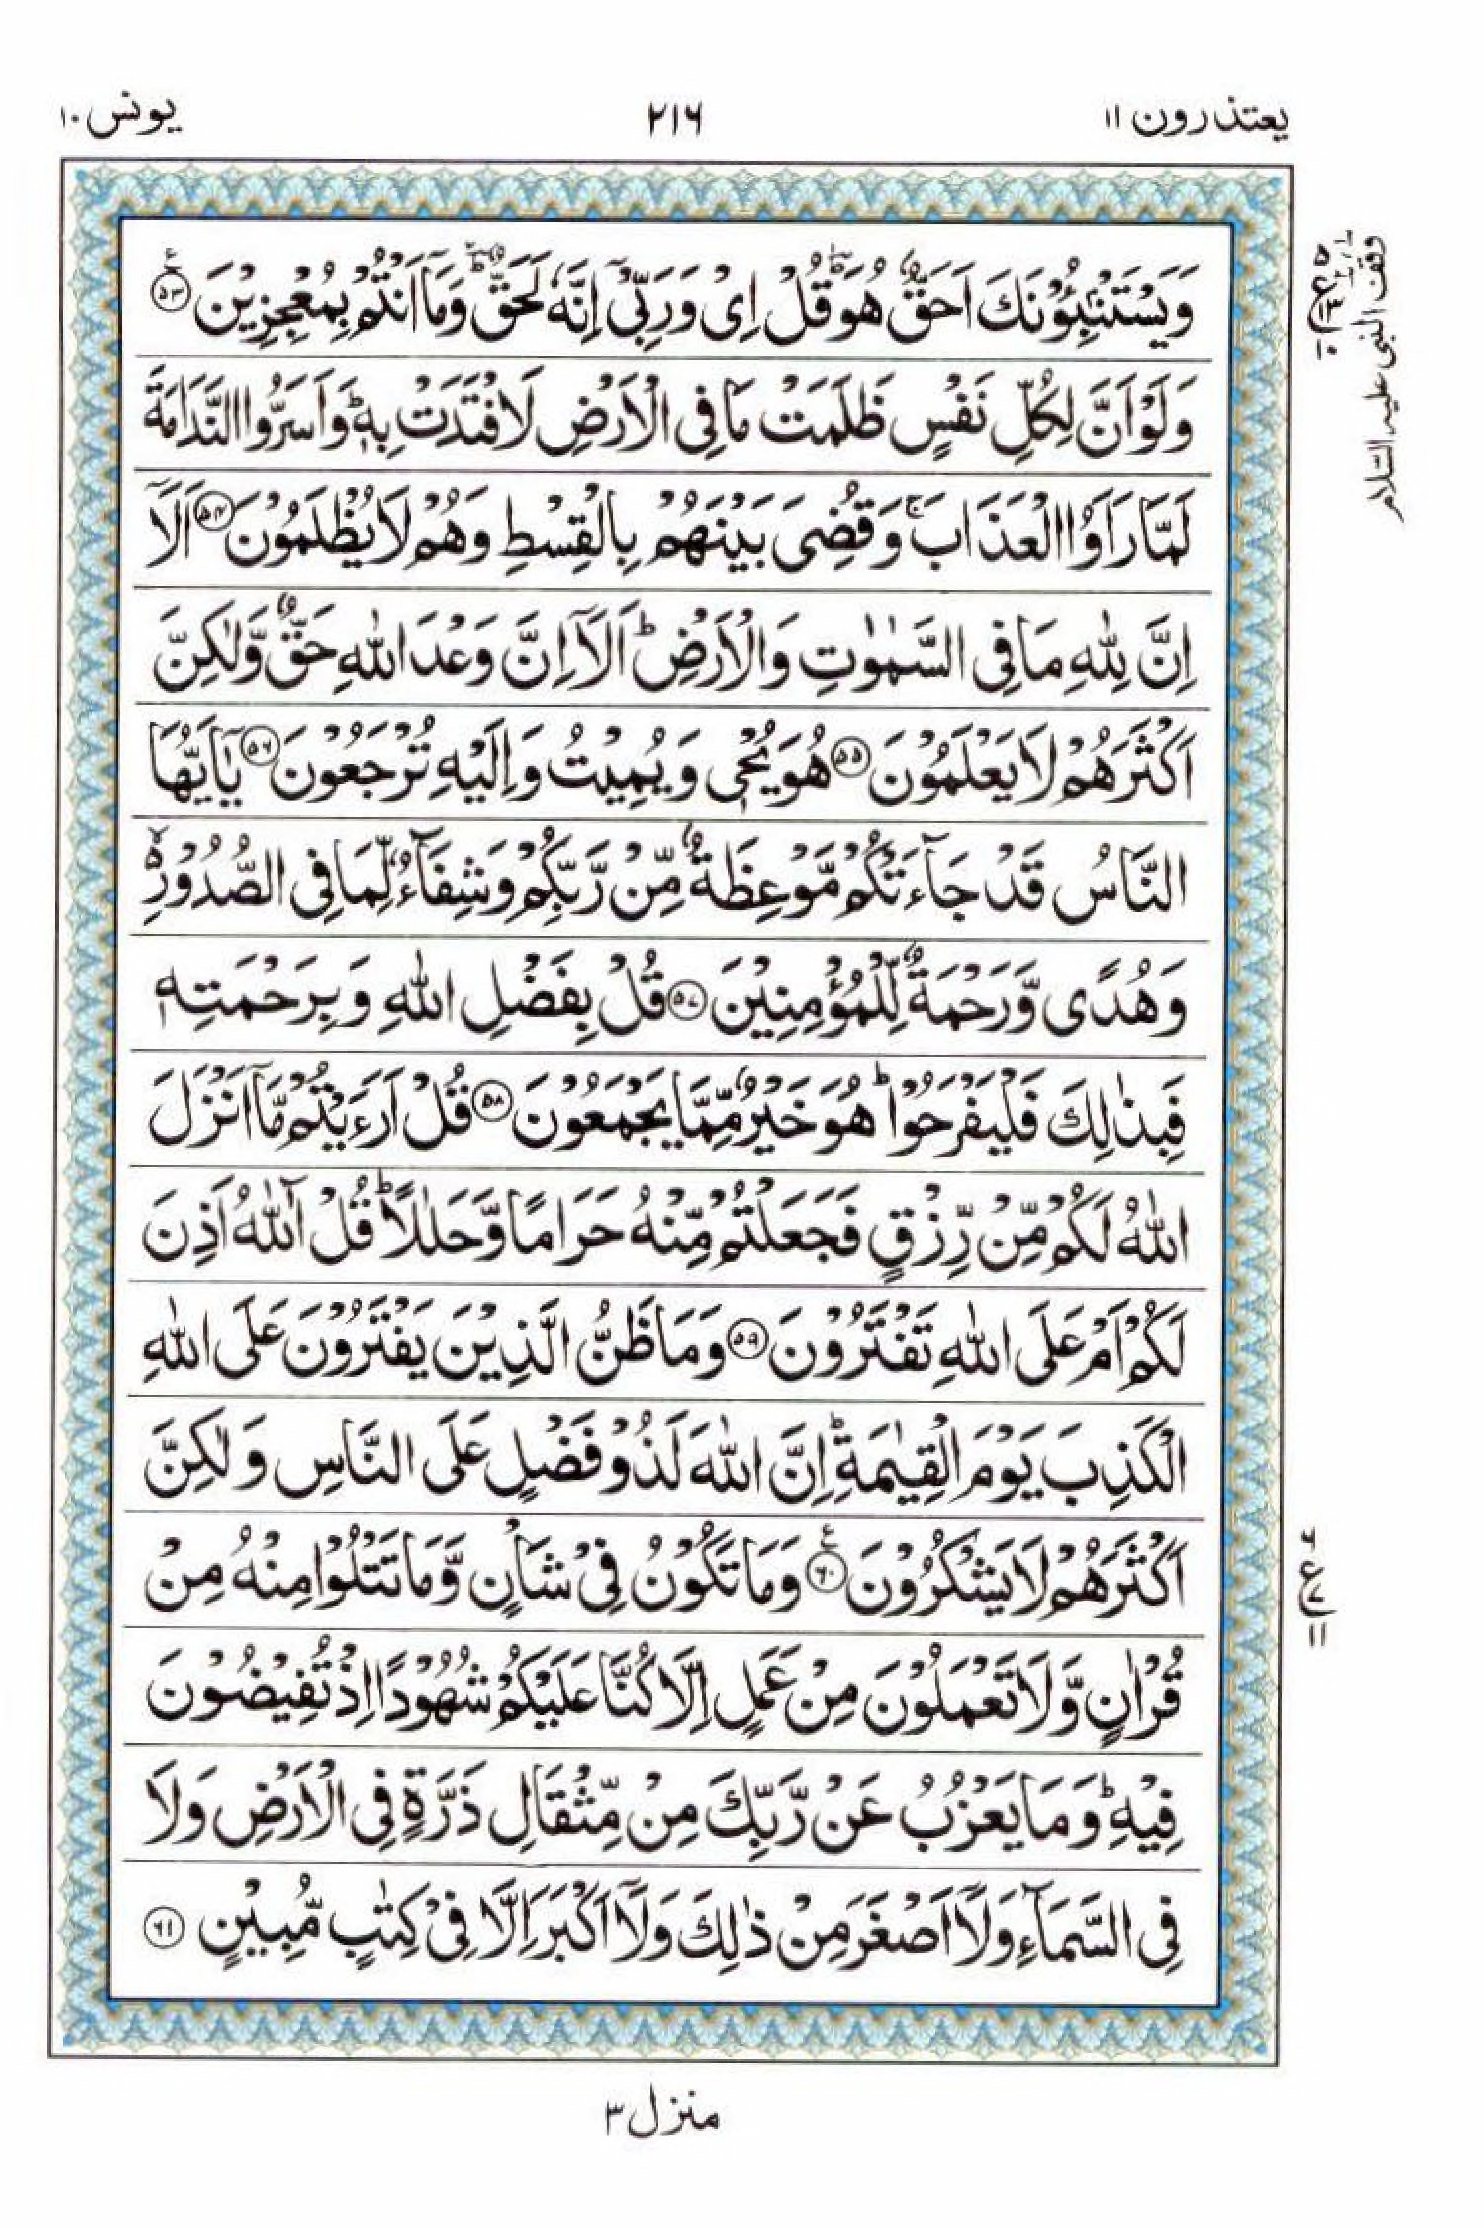 یعتذرون ۱۱
۲۱۶
یونس ۱۰
وَيَسْتَنْۢبِـُٔوْنَكَ اَحَقٌّ هُوَ ؕ قُلْ اِیْ وَرَبِّیْۤ اِنَّهٗ لَحَقٌّ ؔؕ وَمَاۤ اَنْتُمْ بِمُعْجِزِيْنَ ۵۳
وَلَوْ اَنَّ لِكُلِّ نَفْسٍ ظَلَمَتْ مَا فِی الْاَرْضِ لَافْتَدَتْ بِهٖ ؕ وَاَسَرُّوا النَّدَامَةَ
لَمَّا رَاَوُا الْعَذَابَ ۚ وَقُضِیَ بَيْنَهُمْ بِالْقِسْطِ وَهُمْ لَا يُظْلَمُوْنَ ۵۴ اَلَاۤ
اِنَّ لِلّٰهِ مَا فِی السَّمٰوٰتِ وَالْاَرْضِ ؕ اَلَاۤ اِنَّ وَعْدَ اللّٰهِ حَقٌّ وَّلٰكِنَّ
اَكْثَرَهُمْ لَا يَعْلَمُوْنَ ۵۵ هُوَ يُحْیٖ وَيُمِيْتُ وَاِلَيْهِ تُرْجَعُوْنَ ۵۶ يٰۤاَيُّهَا
النَّاسُ قَدْ جَآءَتْكُمْ مَّوْعِظَةٌ مِّنْ رَّبِّكُمْ وَشِفَآءٌ لِّمَا فِی الصُّدُوْرِ ۙ۬
وَهُدًی وَّرَحْمَةٌ لِّلْمُؤْمِنِيْنَ ۵۷ قُلْ بِفَضْلِ اللّٰهِ وَبِرَحْمَتِهٖ
فَبِذٰلِكَ فَلْيَفْرَحُوْا ؕ هُوَ خَيْرٌ مِّمَّا يَجْمَعُوْنَ ۵۸ قُلْ اَرَءَيْتُمْ مَّاۤ اَنْزَلَ
اللّٰهُ لَكُمْ مِّنْ رِّزْقٍ فَجَعَلْتُمْ مِّنْهُ حَرَامًا وَّحَلٰلًا ؕ قُلْ آٰللّٰهُ اَذِنَ
لَكُمْ اَمْ عَلَی اللّٰهِ تَفْتَرُوْنَ ۵۹ وَمَا ظَنُّ الَّذِيْنَ يَفْتَرُوْنَ عَلَی اللّٰهِ
الْكَذِبَ يَوْمَ الْقِيٰمَةِ ؕ اِنَّ اللّٰهَ لَذُوْ فَضْلٍ عَلَی النَّاسِ وَلٰكِنَّ
اَكْثَرَهُمْ لَا يَشْكُرُوْنَ ۶۰ وَمَا تَكُوْنُ فِیْ شَاْنٍ وَّمَا تَتْلُوْا مِنْهُ مِنْ
قُرْاٰنٍ وَّلَا تَعْمَلُوْنَ مِنْ عَمَلٍ اِلَّا كُنَّا عَلَيْكُمْ شُهُوْدًا اِذْ تُفِيْضُوْنَ
فِيْهِ ؕ وَمَا يَعْزُبُ عَنْ رَّبِّكَ مِنْ مِّثْقَالِ ذَرَّةٍ فِی الْاَرْضِ وَلَا
فِی السَّمَآءِ وَلَاۤ اَصْغَرَ مِنْ ذٰلِكَ وَلَاۤ اَكْبَرَ اِلَّا فِیْ كِتٰبٍ مُّبِيْنٍ ۶۱
وقف النبی علیہ السّلام
منزل ۳